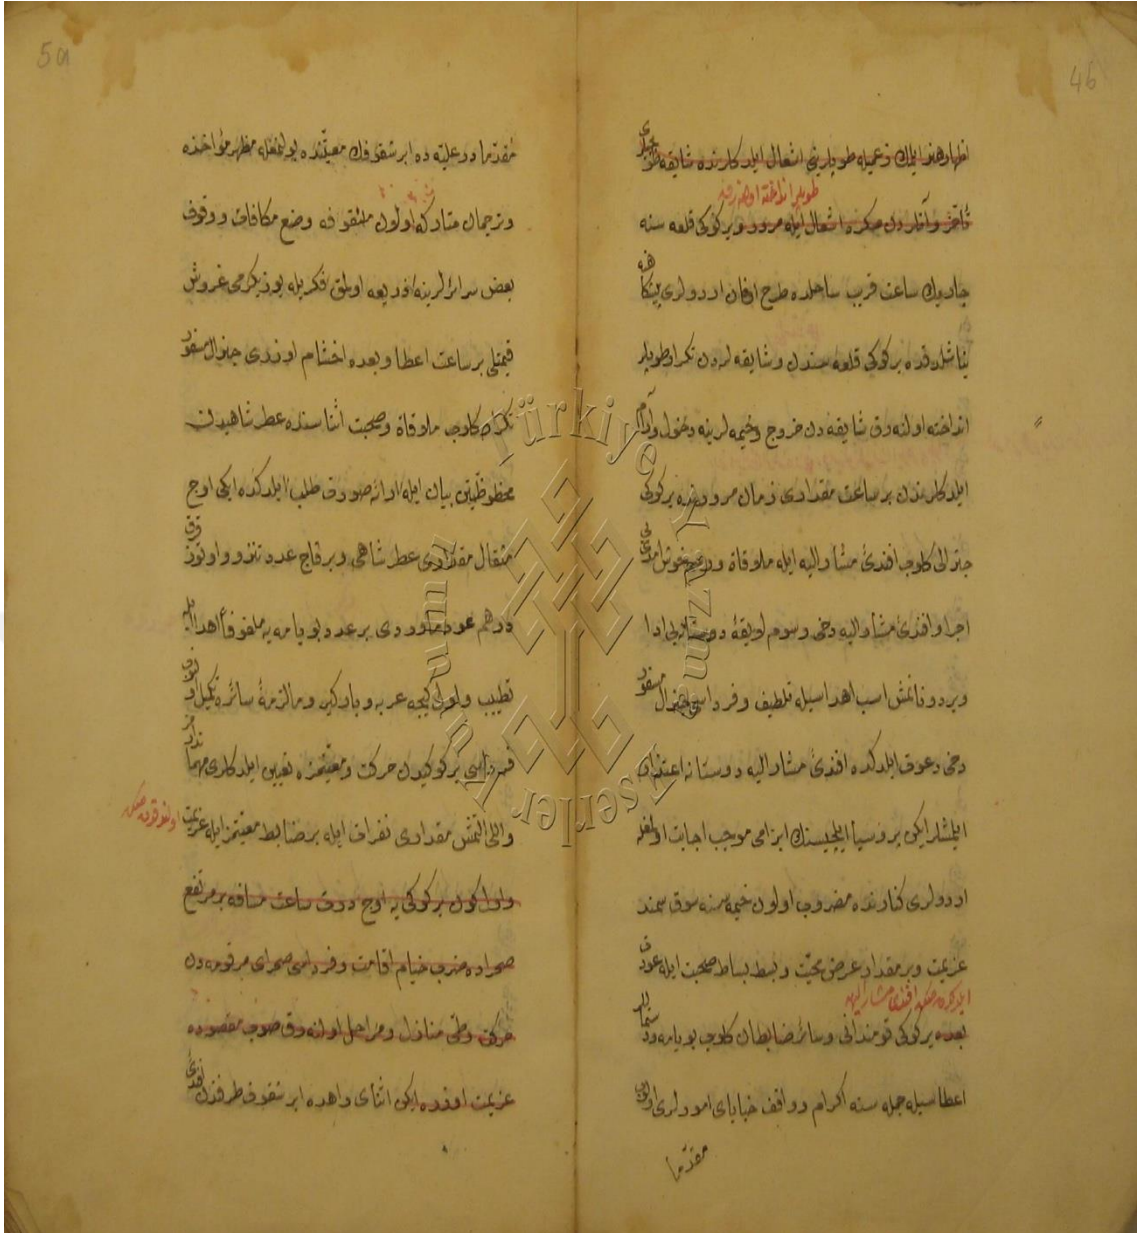 46
اظهار هنر ايمك زعميله طوپلريني اشعال ايلدكلرنده شايقه
طوپلر انداخته اولنه رق
تأخر و آنلردن صكره اشعال ايله مرور و يركوكى قلعه سنه
چاريك ساعت قريب ساحلده طرح اولنان اردولرى پيشكاهنه
يناشلدقده يركوكى قلعه سندن و شايقه لردن تكرار طوپلر
انداخته اولنه رق شايقه دن خروج و خيمه لرينه دخول و آرام
ايلدكلرندن بر ساعت مقدارى زمان مرورنده يركوكى
جنرالى كلوب افندئ مشار اليه ايله ملاقات و رسم خوش آمدى يى
اجرا و افندئ مشار اليه دخى رسوم لايقۀ يى ادا
و بر دونانمش اسب اهداسيله تلطيف و فرداسى جنرال مسفور
دخى دعوت ايلدكده افندئ مشار اليه دوستانه اعتذار
ايلمشلر ايكن بروسيا ايلچيسنك ابرامى موجب اجابت اولمغله
اردولرى كنارنده مضروب اولان خيمه سنه سوق سمند
عزيمت و بر مقدار عرض محبت و بسط بساط صحبت ايله عودت
ايلدكدن صكره افندئ مشار اليه
بعده يركوكى قومندانى و سائر ضابطان كلوب بويامه و
اعطاسيله جمله سنه اكرام و واقف خباياى امورلرى اولان
مقدما
5a
مقدما در عليه ده ابرشقوفك معيتنده بولنمغله مظهر مؤاخذه
و ترجمان متاركه اولان وضع مكافات و وقوف
بعض سرائرلرينه ذريعه اولمق فكريله يوز يكرمى غروش
قيمتلى بر ساعت اعطا و بعده اخشام اوزرى جنرال مسفور
تكرار كلوب ملاقات و صحبت اثناسنده عطر شاهيدن
محظوظيتن بيان ايله ارائه صورت طلب ايلدكده ايكى اوچ
مثقال مقدارى عطر شاهى و بر قاچ عدد تنزو و اوتوز قرق
درهم عود ماوردى بر عدد بويامه يه ملفوفاً اهدا ايله
تطييب و اول كيجه عربه و باركير و مالزمۀ سائره تكميل اولنوب
فرداسى يركوكيدن حركت و معيتمزه تعيين ايلدكلرى مهماندار
و اللى التمش مقدارى نفرات ايله بر ضابط معيتمز ايله عزيمت
اولنوقدن صكره
و اول كون يركوكى يه اوچ درت ساعت مسافه بر مرتفع
صحراده ضرب خيام اقامت و فرداسى صحراى مرقومه دن
حركت و طى منازل و مراحل اولنه رق صوب مقصوده
عزيمت اوزره ايكن اثناى راهده ابرشقوف طرفندن افندئ